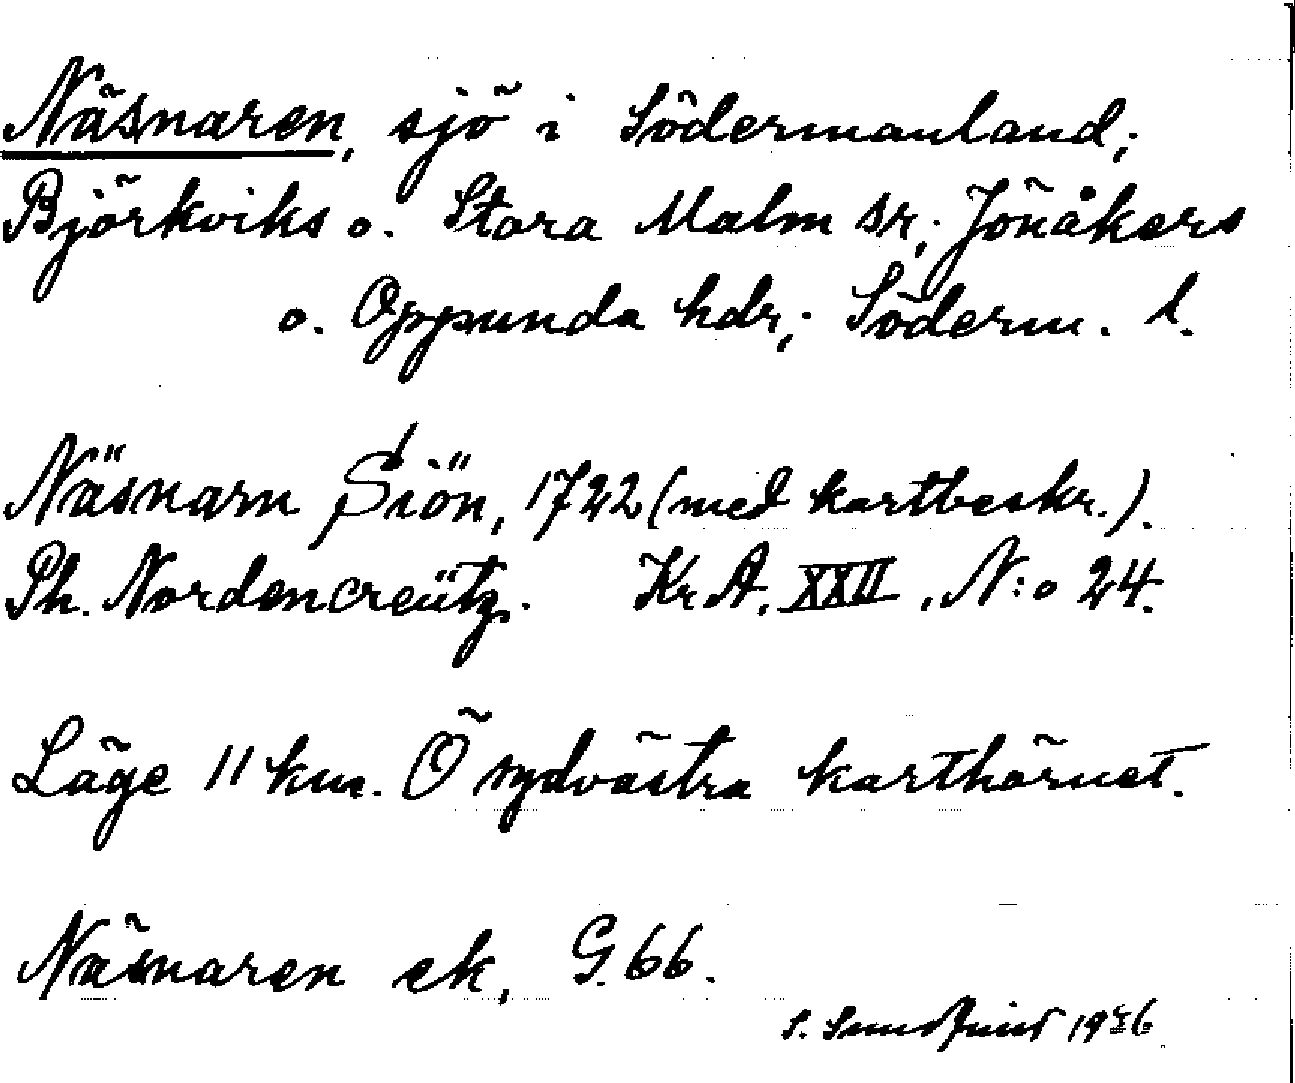 Näsnaren, sjö i Södermanland;
Björkviks o. Stora Malm sr,; Jönåkers
o. Oppunda hdr,; Söderm. l.
Näsnarn Siön, 1722 (med kartbeskr.).
Ph. Nordencreütz. Kr. A. XXII, N:o 24.
Läge 11 km. Ö sydvästra karthörnet.
Näsnaren ek, G. 66.
S. 19